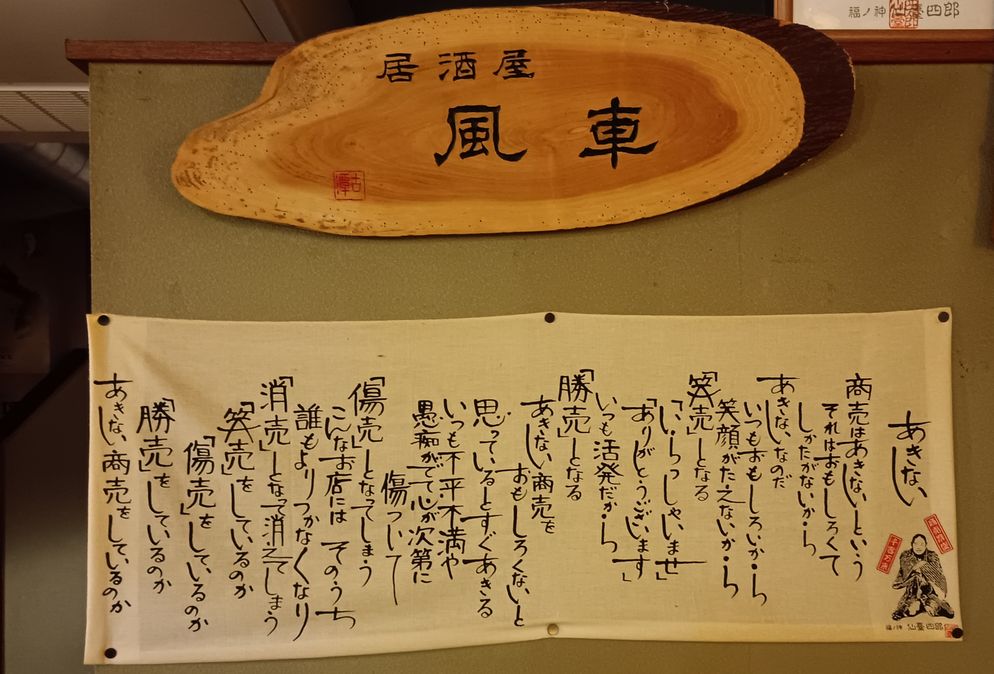 福ノ神 仙臺四郎
居酒屋
風車
古潭
あきない
商売はあきないという
それはおもしろくて
しかたがないから
あきないなのだ
いつもおもしろいから
笑顔がたえないから
「笑売」となる
「いらっしゃいませ」
「ありがとうございます」
いつも活発だから
「勝売」となる
あきない商売を
おもしろくないと
思っているとすぐあきる
いつも不平不満や
愚痴がでて心が次第に
傷ついて
「傷売」となってしまう
こんなお店には そのうち
誰もよりつかなくなり
「消売」となって消えてしまう
「笑売」をしているのか
「傷売」をしているのか
「勝売」をしているのか
あきない商売をしているのか
福ノ神 仙臺四郎